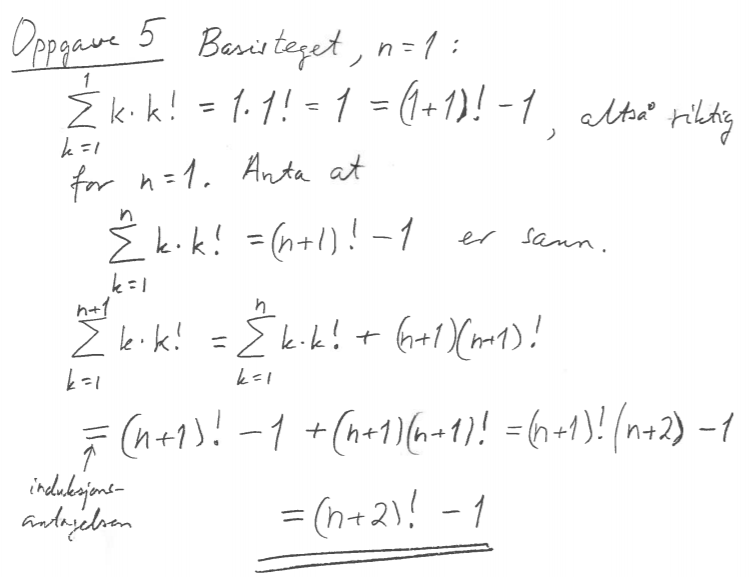 Oppgave 5 Basisteget, n=1:
1
∑ k·k! = 1·1! = 1 = (1+1)! - 1, altså riktig
k=1
for n=1. Anta at
n
∑ k·k! = (n+1)! - 1 er sann.
k=1
n+1 n
∑ k·k! = ∑ k·k! + (n+1)(n+1)!
k=1 k=1
= (n+1)! - 1 + (n+1)(n+1)! = (n+1)!(n+2) - 1
↑
induksjons-
antagelsen = (n+2)! - 1